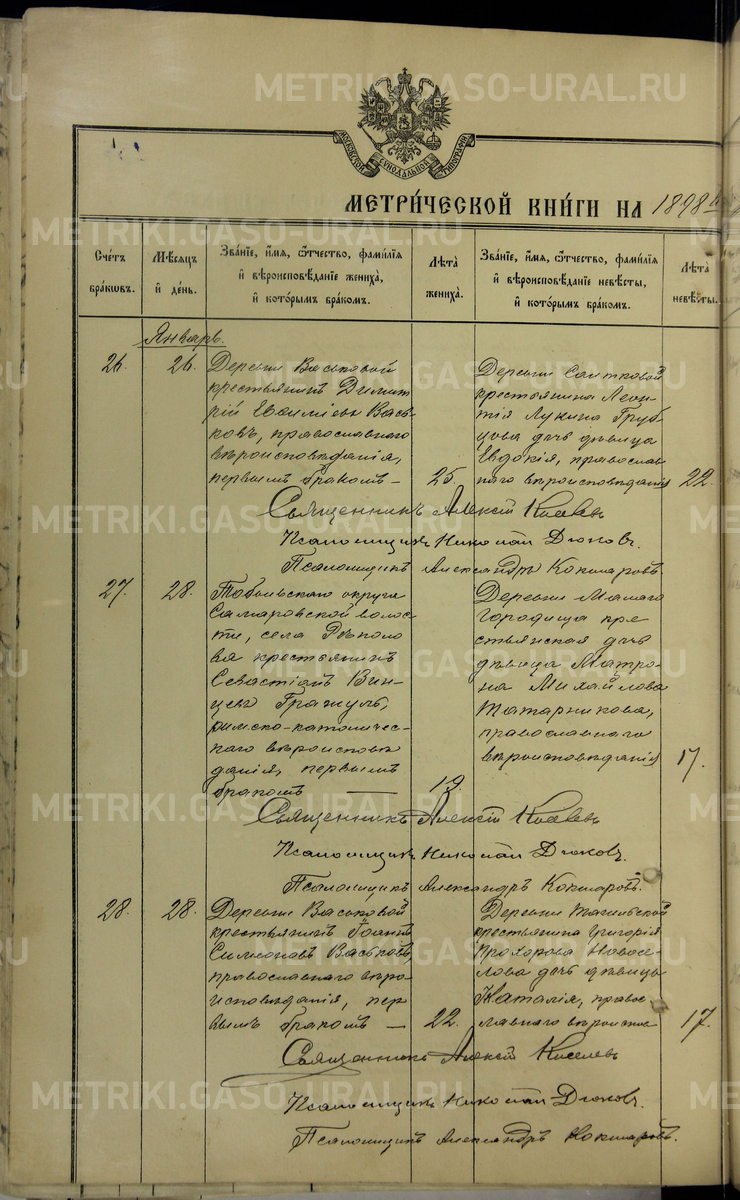 METRIKI.GASO-URAL.RU
МОСКОВСКОЙ СѴНОДАЛЬНОЙ ТИПОГРАФІИ
МЕТРИ́ЧЕСКОЙ КНИ́ГИ НА 1898
Сче́тъ бра́кωвъ.
Мѣ́сѧцъ и҆ де́нь.
Зва́нїе, и҆́мѧ, ѻ҆́тчество, фами́лїѧ и҆ вѣроисповѣ́данїе жениха̀, и҆ кото́рымъ бра́комъ.
Лѣ́та жениха̀.
Зва́нїе, и҆́мѧ, ѻ҆́тчество, фами́лїѧ и҆ вѣроисповѣ́данїе невѣ́сты, и҆ кото́рымъ бра́комъ.
Лѣ́та невѣ́сты.
Январь.
26.
26.
Деревни Васьковой
крестьянинъ Димит
рій Вась
ковъ, православнаго
вѣроисповѣданія,
первымъ бракомъ —
25.
Деревни Саитковой
крестьянина Леон
тія Лукина Груб
цова дочь дѣвица
Евдокія, православ
наго вѣроисповѣданія
22.
Священникъ Алексій Киселевъ
Псаломщикъ Николай Дюковъ.
Псаломщикъ Александръ Кокшаровъ.
27.
28.
Тобольскаго округа
Самаровской волос
ти, села Рѣполо
ва крестьянинъ
Севастіанъ Вин-
цев
римско-католичес-
каго вѣроисповѣ
данія, первымъ
бракомъ —
19.
Деревни Малаго
Городища кре
стьянская дочь
дѣвица Матро
на Михайлова
Татарникова,
православнаго
вѣроисповѣданія
17.
Священникъ Алексій Киселевъ
Псаломщикъ Николай Дюковъ.
Псаломщикъ Александръ Кокшаровъ.
28.
28.
Деревни Васьковой
крестьянинъ Іоаннъ
Симеоновъ Васьковъ,
православнаго вѣро
исповѣданія, пер
вымъ бракомъ —
22.
Деревни Тагильской
крестьянина Григорія
Прохорова Новосе
лова дочь дѣвица
Наталія, право
славнаго вѣроиспов
17.
Священникъ Алексій Киселевъ
Псаломщикъ Николай Дюковъ.
Псаломщикъ Александръ Кокшаровъ.